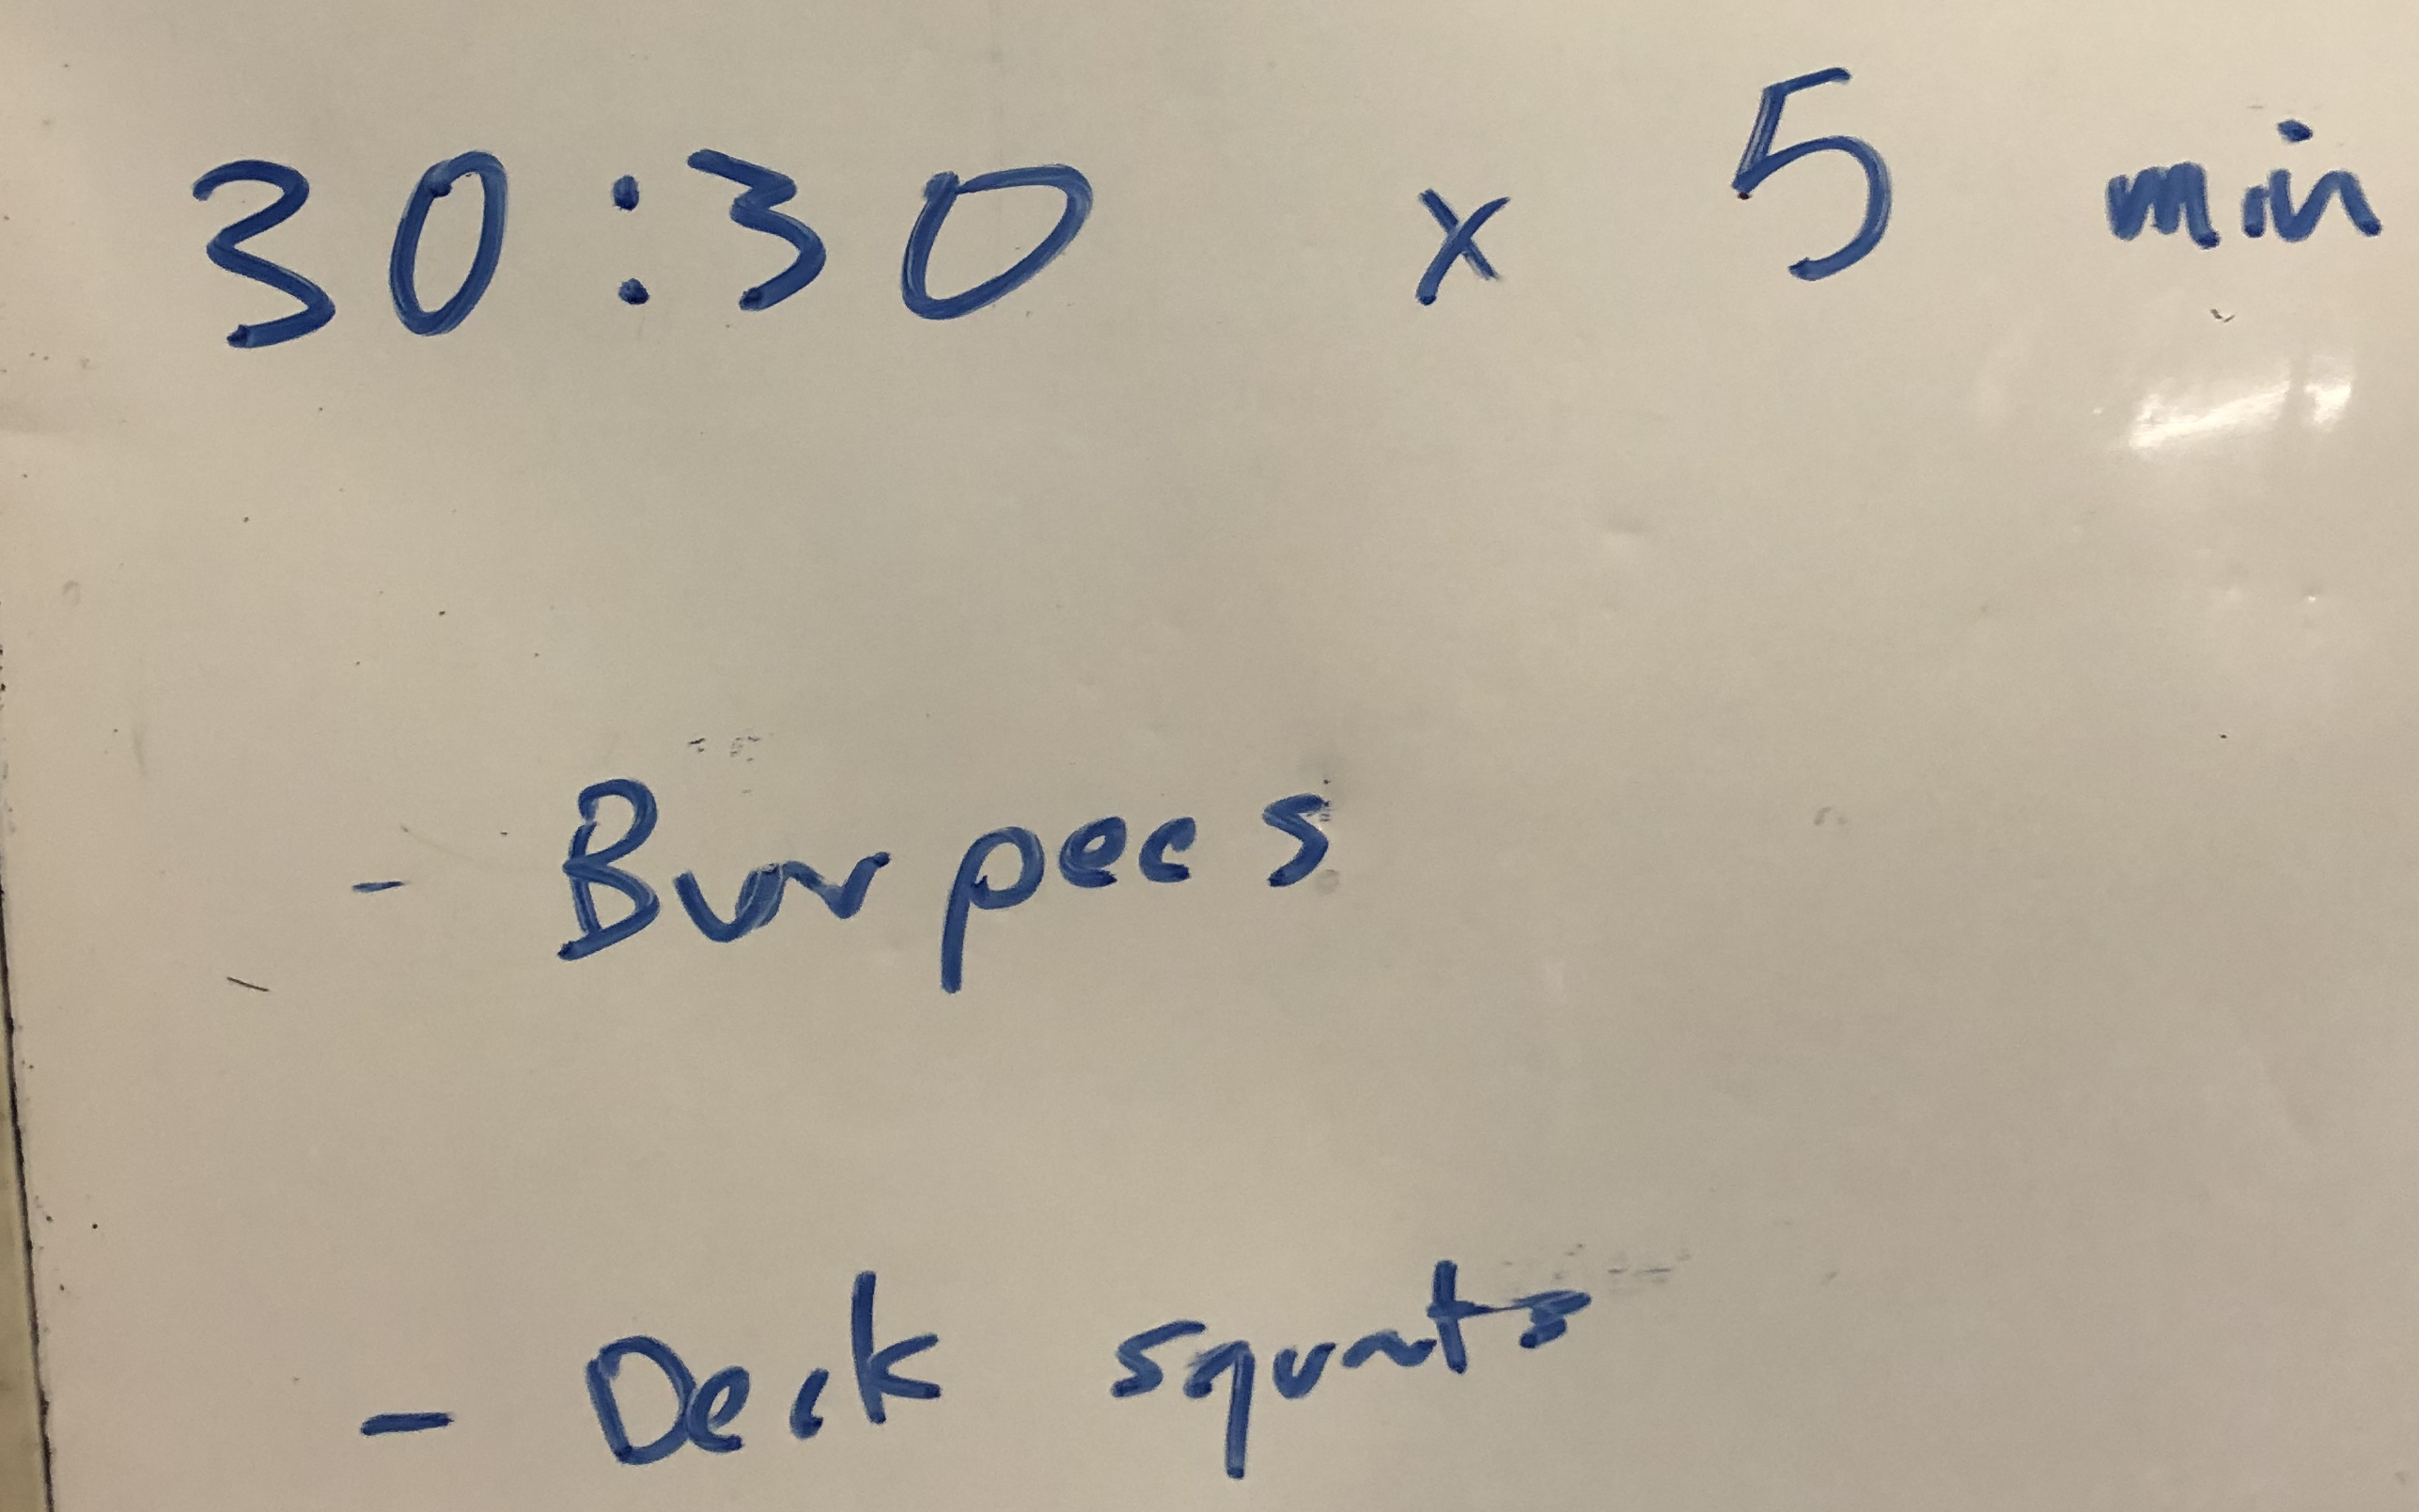 30:30 x 5 min
- Burpees
- Deck squats